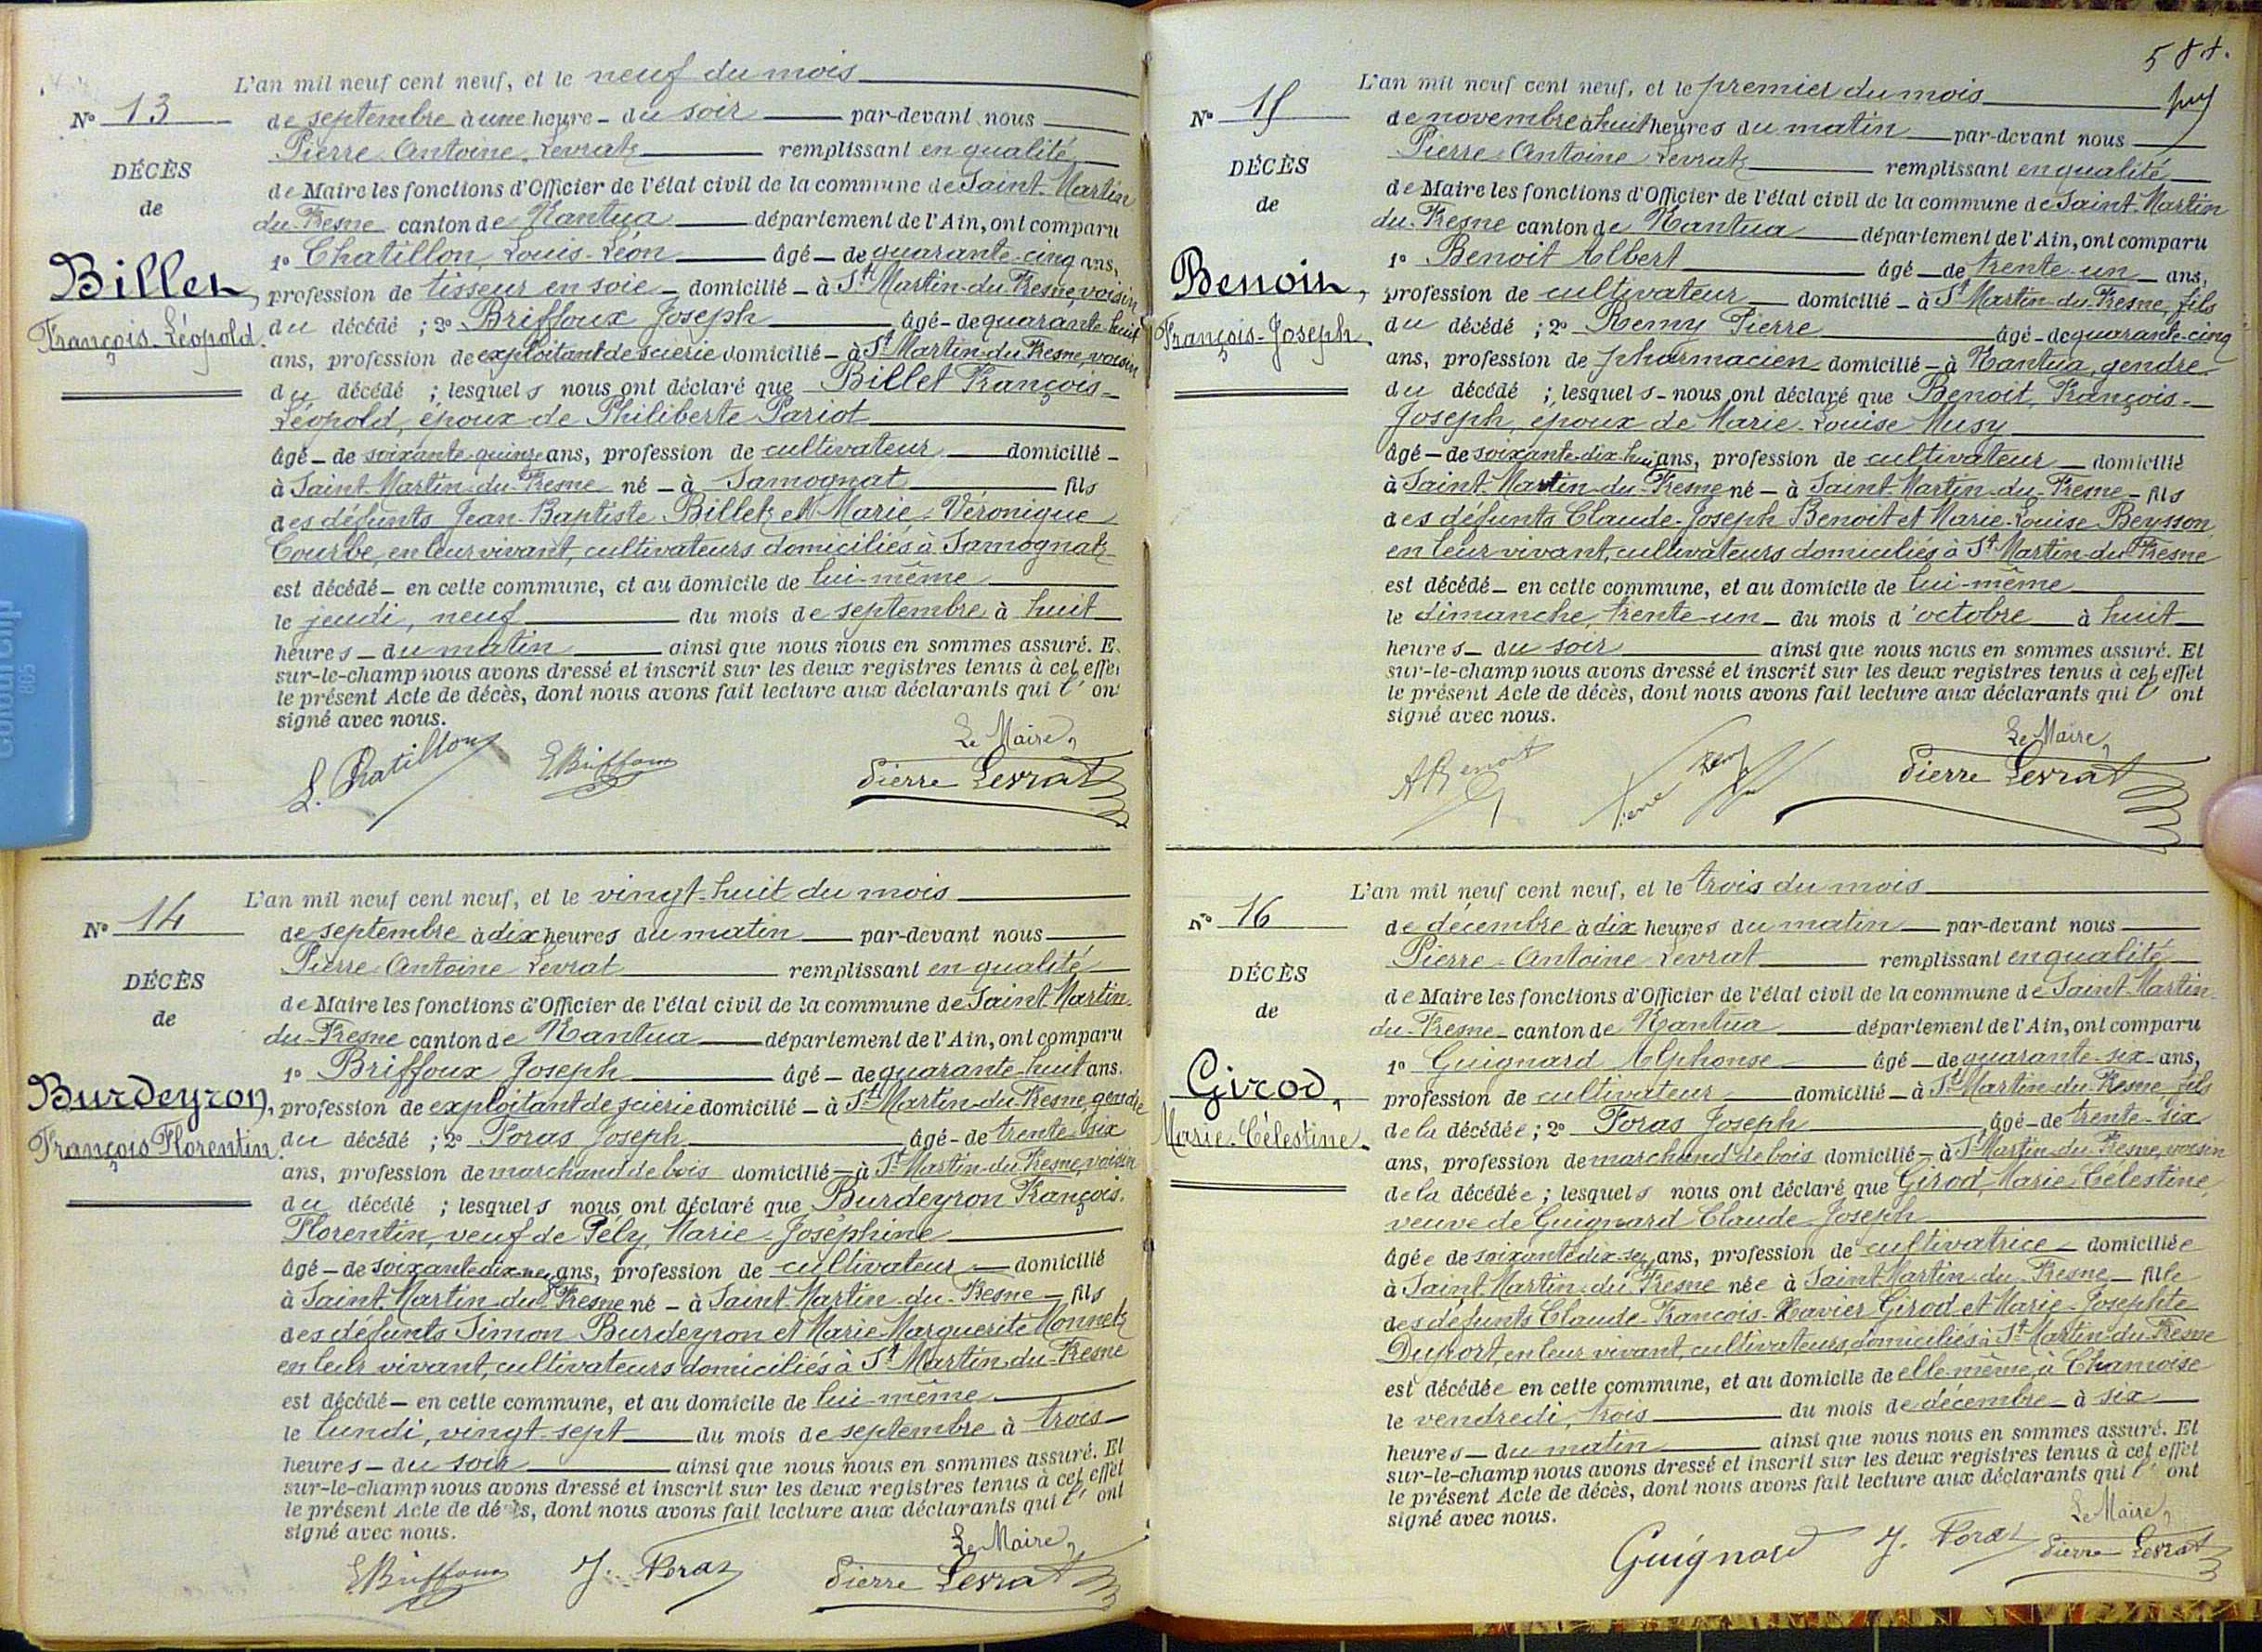 L'an mil neuf cent neuf, et le neuf du mois
N° 13
de septembre à une heure - du soir par-devant nous
Pierre-Antoine Levrat remplissant en qualité
DÉCÈS
de Maire les fonctions d'Officier de l'état civil de la commune de Saint-Martin
de
du-Fresne canton de Nantua département de l'Ain, ont comparu
1° Chatillon, Louis-Léon âgé - de quarante-cinq ans,
Billet,
profession de tisseur en soie - domicilié - à St Martin-du-Fresne, voisin
François-Léopold.
du décédé ; 2° Briffoux Joseph âgé - de quarante-huit
ans, profession de exploitant de scierie domicilié - à St Martin-du-Fresne, voisin
du décédé ; lesquels nous ont déclaré que Billet François-
Léopold, époux de Philiberte Pariot
âgé - de soixante-quinze ans, profession de cultivateur domicilié -
à Saint-Martin-du-Fresne né - à Samognat fils
des défunts Jean-Baptiste Billet et Marie-Véronique
Courbe, en leur vivant, cultivateurs domiciliés à Samognat
est décédé - en cette commune, et au domicile de lui-même
le jeudi, neuf du mois de septembre à huit
heures - du matin ainsi que nous nous en sommes assuré. E
sur-le-champ nous avons dressé et inscrit sur les deux registres tenus à cet effet
le présent Acte de décès, dont nous avons fait lecture aux déclarants qui l'ont
signé avec nous.
Le Maire,
L. Chatillon EBriffoux Pierre Levrat
L'an mil neuf cent neuf, et le vingt-huit du mois
N° 14
de septembre à dix heures du matin par-devant nous
Pierre-Antoine Levrat remplissant en qualité
DÉCÈS
de Maire les fonctions d'Officier de l'état civil de la commune de Saint-Martin-
de
du-Fresne canton de Nantua département de l'Ain, ont comparu
1° Briffoux Joseph âgé - de quarante-huit ans.
Burdeyron,
profession de exploitant de scierie domicilié - à St Martin-du-Fresne, gendre
François Florentin.
du décédé ; 2° Foras Joseph âgé - de trente-six
ans, profession de marchand de bois domicilié - à St Martin-du-Fresne, voisin
du décédé ; lesquels nous ont déclaré que Burdeyron François-
Florentin, veuf de Pély, Marie-Joséphine
âgé - de soixante-dix-neuf ans, profession de cultivateur domicilié
à Saint-Martin-du-Fresne né - à Saint-Martin-du-Fresne - fils
des défunts Simon Burdeyron et Marie-Marguerite Monnet
en leur vivant, cultivateurs domiciliés à St Martin-du-Fresne
est décédé - en cette commune, et au domicile de lui-même
le lundi, vingt-sept du mois de septembre à trois
heures - du soir ainsi que nous nous en sommes assuré. Et
sur-le-champ nous avons dressé et inscrit sur les deux registres tenus à cet effet
le présent Acte de décès, dont nous avons fait lecture aux déclarants qui l'ont
signé avec nous.
Le Maire,
EBriffoux J. Foraz Pierre Levrat
L'an mil neuf cent neuf, et le premier du mois
N° 15
de novembre à huit heures du matin par-devant nous
Pierre-Antoine Levrat remplissant en qualité
DÉCÈS
de Maire les fonctions d'Officier de l'état civil de la commune de Saint-Martin
de
du-Fresne canton de Nantua département de l'Ain, ont comparu
1° Benoit Albert âgé - de trente-un - ans,
Benoit,
profession de cultivateur domicilié - à St Martin-du-Fresne, fils
François-Joseph.
du décédé ; 2° Remy Pierre âgé - de quarante-cinq
ans, profession de pharmacien domicilié - à Nantua, gendre
du décédé ; lesquels - nous ont déclaré que Benoit, François-
Joseph, époux de Marie-Louise Musy
âgé - de soixante-dix-huit ans, profession de cultivateur domicilié
à Saint-Martin-du-Fresne né - à Saint-Martin-du-Fresne - fils
des défunts Claude-Joseph Benoit et Marie-Louise Beysson
en leur vivant, cultivateurs domiciliés à St Martin-du-Fresne
est décédé - en cette commune, et au domicile de lui-même
le dimanche, trente-un - du mois d'octobre à huit
heures - du soir ainsi que nous nous en sommes assuré. Et
sur-le-champ nous avons dressé et inscrit sur les deux registres tenus à cet effet
le présent Acte de décès, dont nous avons fait lecture aux déclarants qui l'ont
signé avec nous.
Le Maire,
ABenoit Pierre Remy Pierre Levrat
L'an mil neuf cent neuf, et le trois du mois
N° 16
de décembre à dix heures du matin par-devant nous
Pierre-Antoine Levrat remplissant en qualité
DÉCÈS
de Maire les fonctions d'Officier de l'état civil de la commune de Saint-Martin-
de
du-Fresne canton de Nantua département de l'Ain, ont comparu
1° Guignard Alphonse âgé - de quarante-six ans,
Girod,
profession de cultivateur domicilié - à St Martin-du-Fresne, fils
Marie-Célestine.
de la décédée ; 2° Foras Joseph âgé - de trente-six
ans, profession de marchand de bois domicilié - à St Martin-du-Fresne, voisin
de la décédée ; lesquels nous ont déclaré que Girod, Marie-Célestine,
veuve de Guignard Claude-Joseph
âgée de ans, profession de cultivatrice - domiciliée
à Saint-Martin-du-Fresne née à Saint-Martin-du-Fresne - fille
des défunts Claude-François-Xavier Girod et Marie-Josephte
Duport, en leur vivant, cultivateurs, domiciliés à St Martin-du-Fresne
est décédée en cette commune, et au domicile de elle-même, à Chamoise
le vendredi, trois du mois de décembre - à six
heures - du matin ainsi que nous nous en sommes assuré. Et
sur-le-champ nous avons dressé et inscrit sur les deux registres tenus à cet effet
le présent Acte de décès, dont nous avons fait lecture aux déclarants qui l'ont
signé avec nous.
Le Maire,
Guignard J. Foraz Pierre Levrat